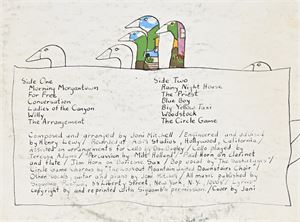 Side One
Morning Morgantown
For Free
Conversation
Ladies of the Canyon
Willy
The Arrangement
Side Two
Rainy Night House
The Priest
Blue Boy
Big Yellow Taxi
Woodstock
The Circle Game
Composed and arranged by Joni Mitchell / Engineered and advised
by Henry Lewy / Recorded at A&M Studios, Hollywood, California /
assisted in arrangements for cello by Don Bagley / Cello played by
Teressa Adams / Percussion by Milt Holland / Paul Horn on clarinet
and flute / Jim Horn on baritone sax / Bop vocal by The Saskatunes /
Circle Game chorus by The Lookout Mountain United Downstairs Choir /
Other vocals, guitar and piano by Joni Mitchell / All music published by
Siquomb Publishing, 55 Liberty Street, New York, N.Y. /
copyright by and reprinted with Siquomb's permission / Cover by Joni